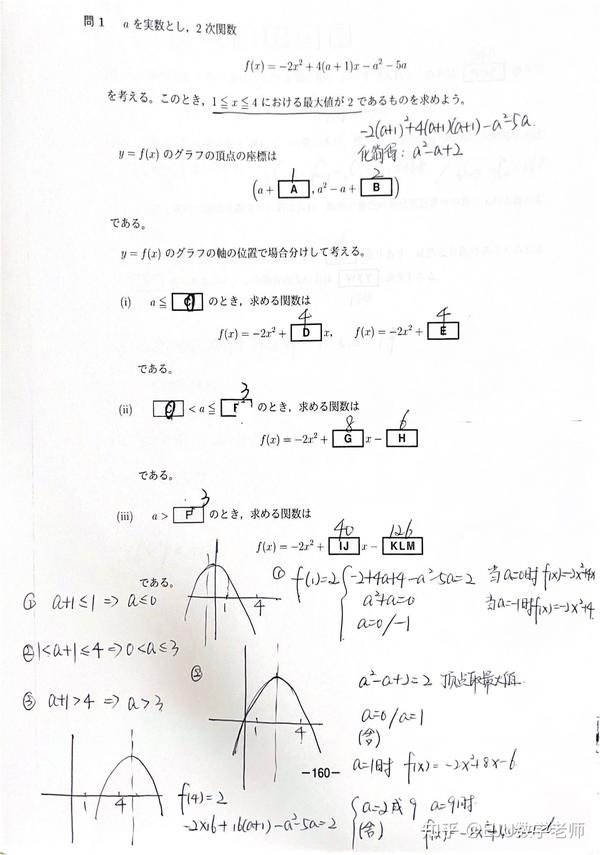 問 1 a を実数とし，2 次関数
f(x) = −2x² + 4(a+1)x − a² − 5a
を考える。このとき，1 ≦ x ≦ 4 における最大値が 2 であるものを求めよう。
-2(a+1)²+4(a+1)(a+1)-a²-5a.
y = f(x) のグラフの頂点の座標は
化简得: a²-a+2
1 2
(a + A , a² − a + B )
である。
y = f(x) のグラフの軸の位置で場合分けして考える。
(i) a ≦ 0 のとき，求める関数は
4 4
f(x) = −2x² + D x, f(x) = −2x² + E
である。
3
(ii) 0 < a ≦ F のとき，求める関数は
8 6
f(x) = −2x² + G x − H
である。
3
(iii) a > F のとき，求める関数は
40 126
f(x) = −2x² + IJ x − KLM
である。
① a+1≤1 => a≤0
② 1<a+1≤4 => 0<a≤3
③ a+1>4 => a>3
1 4
① f(1)=2 { -2+4a+4-a²-5a=2 当a=0时 f(x)=-2x²+4x
a²+a=0 当a=-1时f(x)=-2x²+4.
a=0/-1
②
1 4
a²-a+2=2 顶点取最大值.
a=0/a=1
(舍)
a=1时 f(x)=-2x²+8x-6
1 4
f(4)=2
-2×16+16(a+1)-a²-5a=2
{ a=2或9 a=9时
(舍)
−160−
知乎 @EJU数学老师